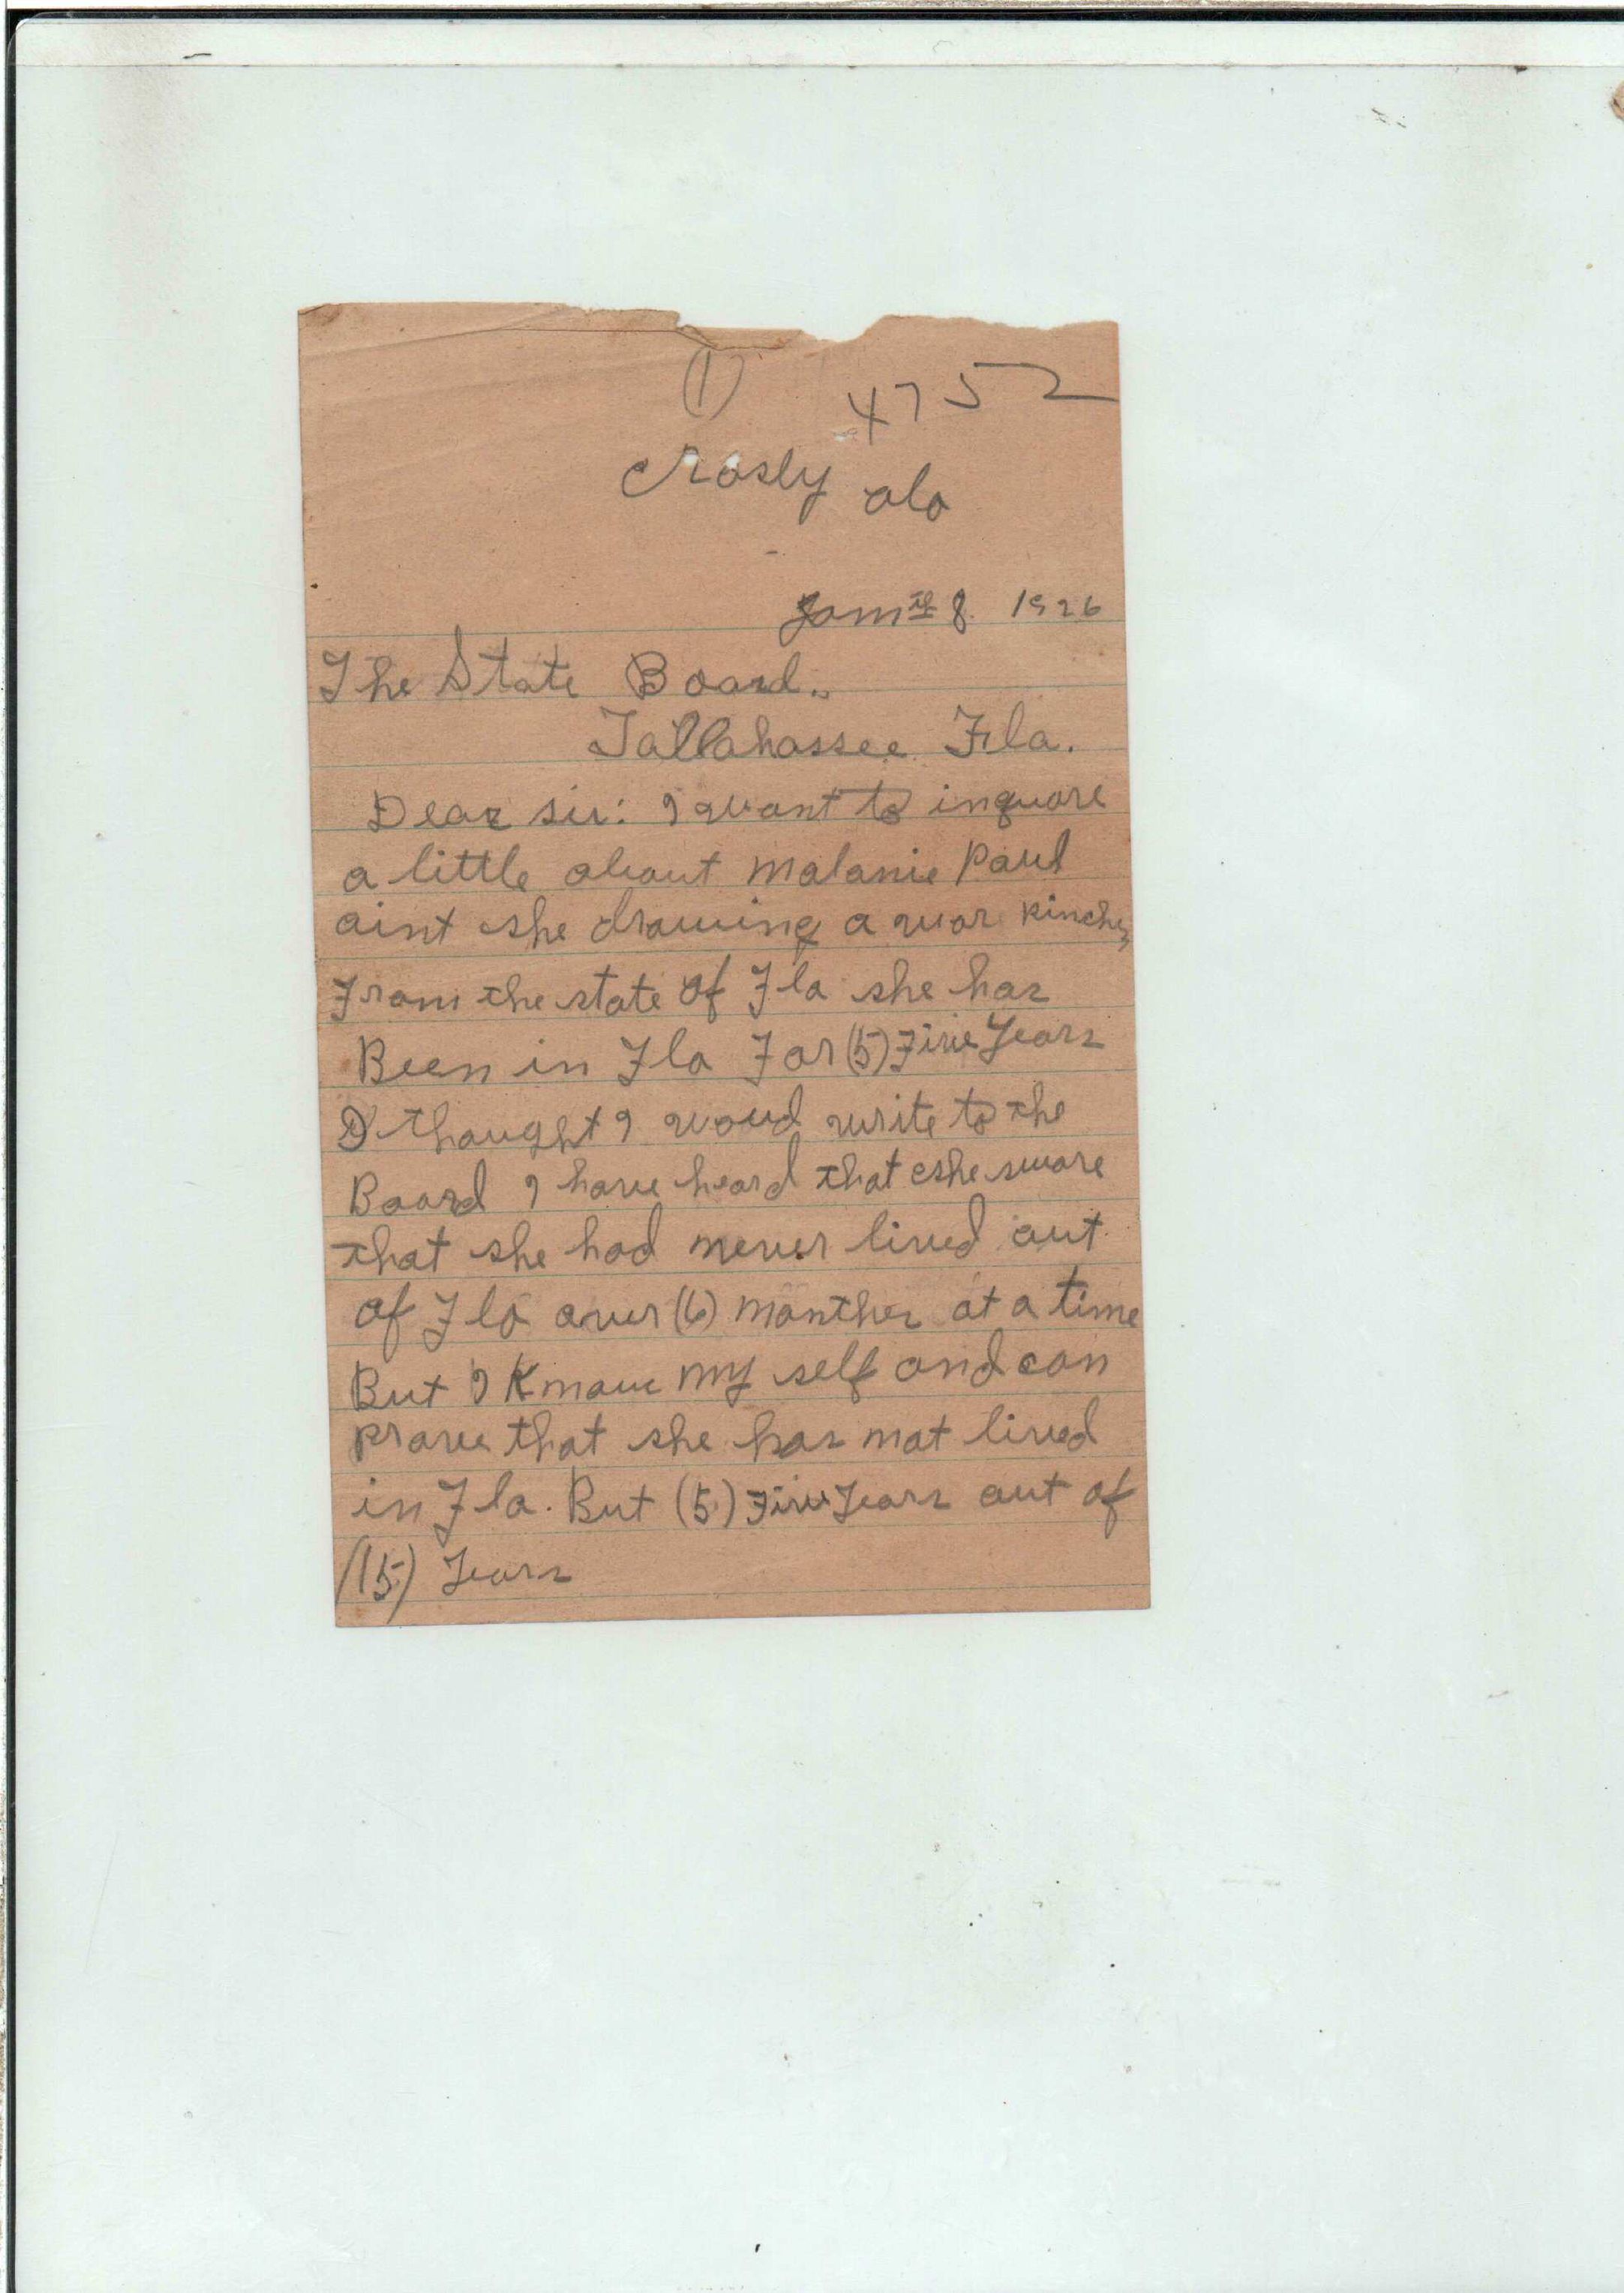 (1)
4752
Crosly ala
Jan th 8. 1926
The State Board..
Tallahassee Fla.
Dear sir: I want to inquare
a little about Malanie Paul
aint she drawing a war Pinchen
From the state of Fla she has
Been in Fla For (5) Five Years
I thought I woud write to the
Board I have heard that she sware
that she had never lived out
of Fla over (6) monthes at a time
But I Know my self and can
prove that she has not lived
in Fla. But (5) Five Years out of
(15) Years